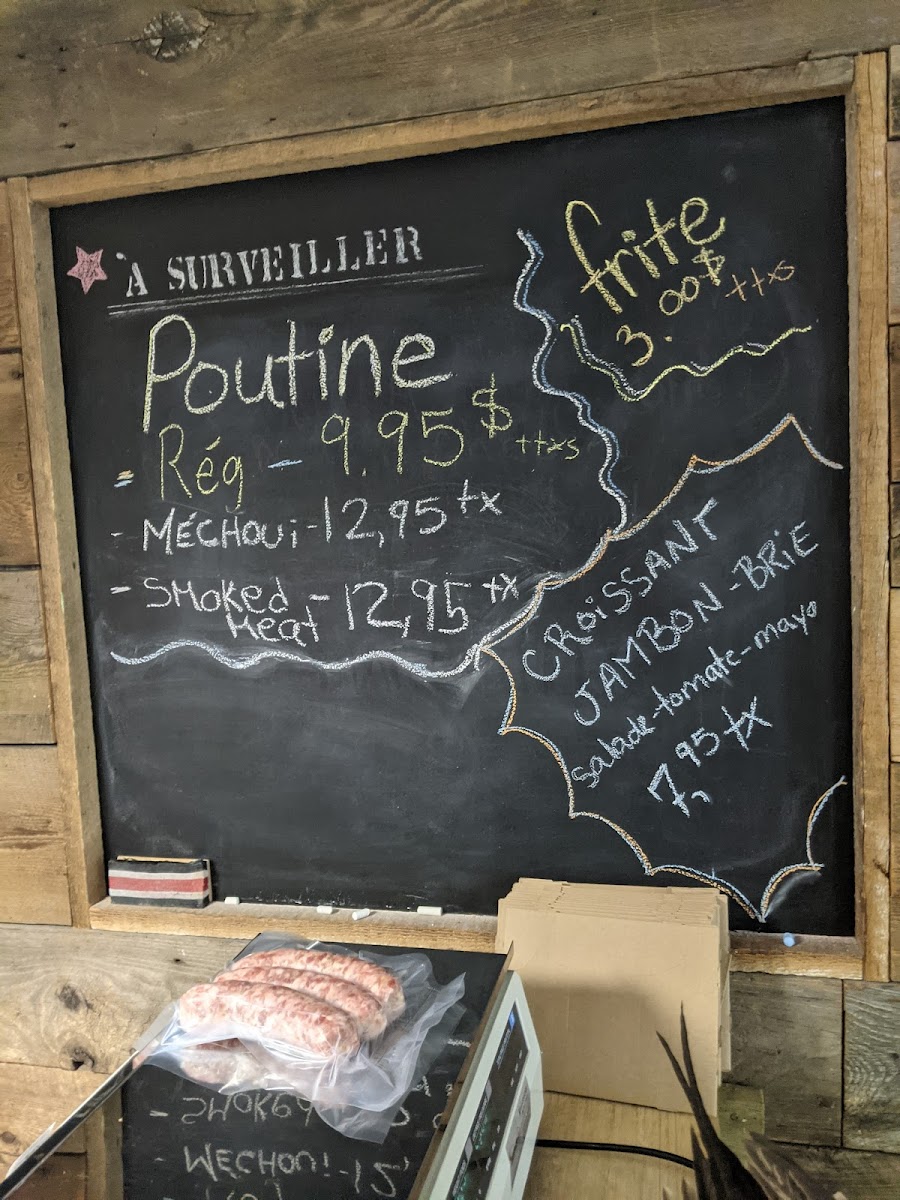 À SURVEILLER
Poutine
- Rég - 9.95$ ttxs
- MÉCHOUi - 12,95 tx
- SMOKED MEAT - 12,95 tx
frite
3.00$ ttxs
CROiSSANT
JAMBON-BRIE
salade-tomate-mayo
7,95 tx